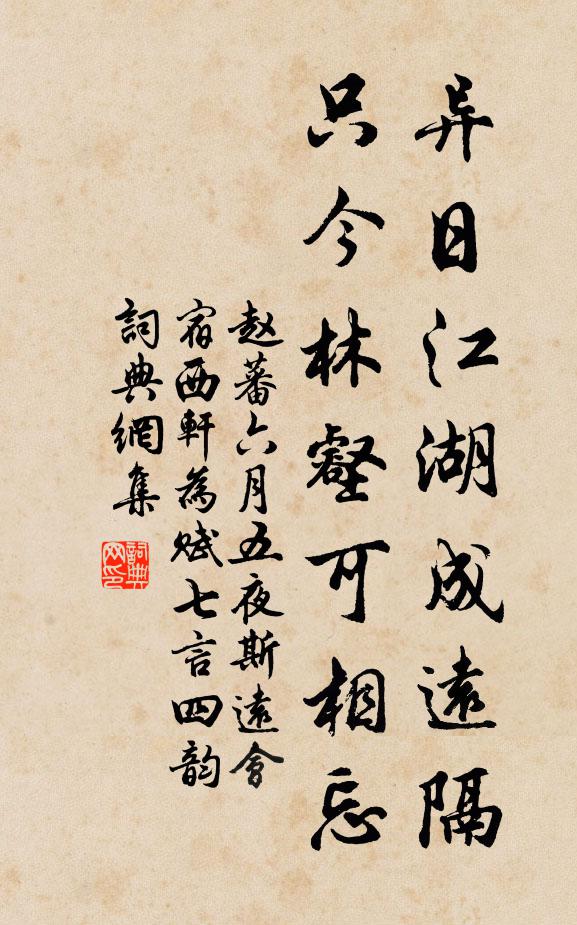 异日江湖成遠隔
只今林壑可相忘
赵蕃六月五夜斯遠會
宿西軒為賦七言四韵
詞典網集
詞典网印